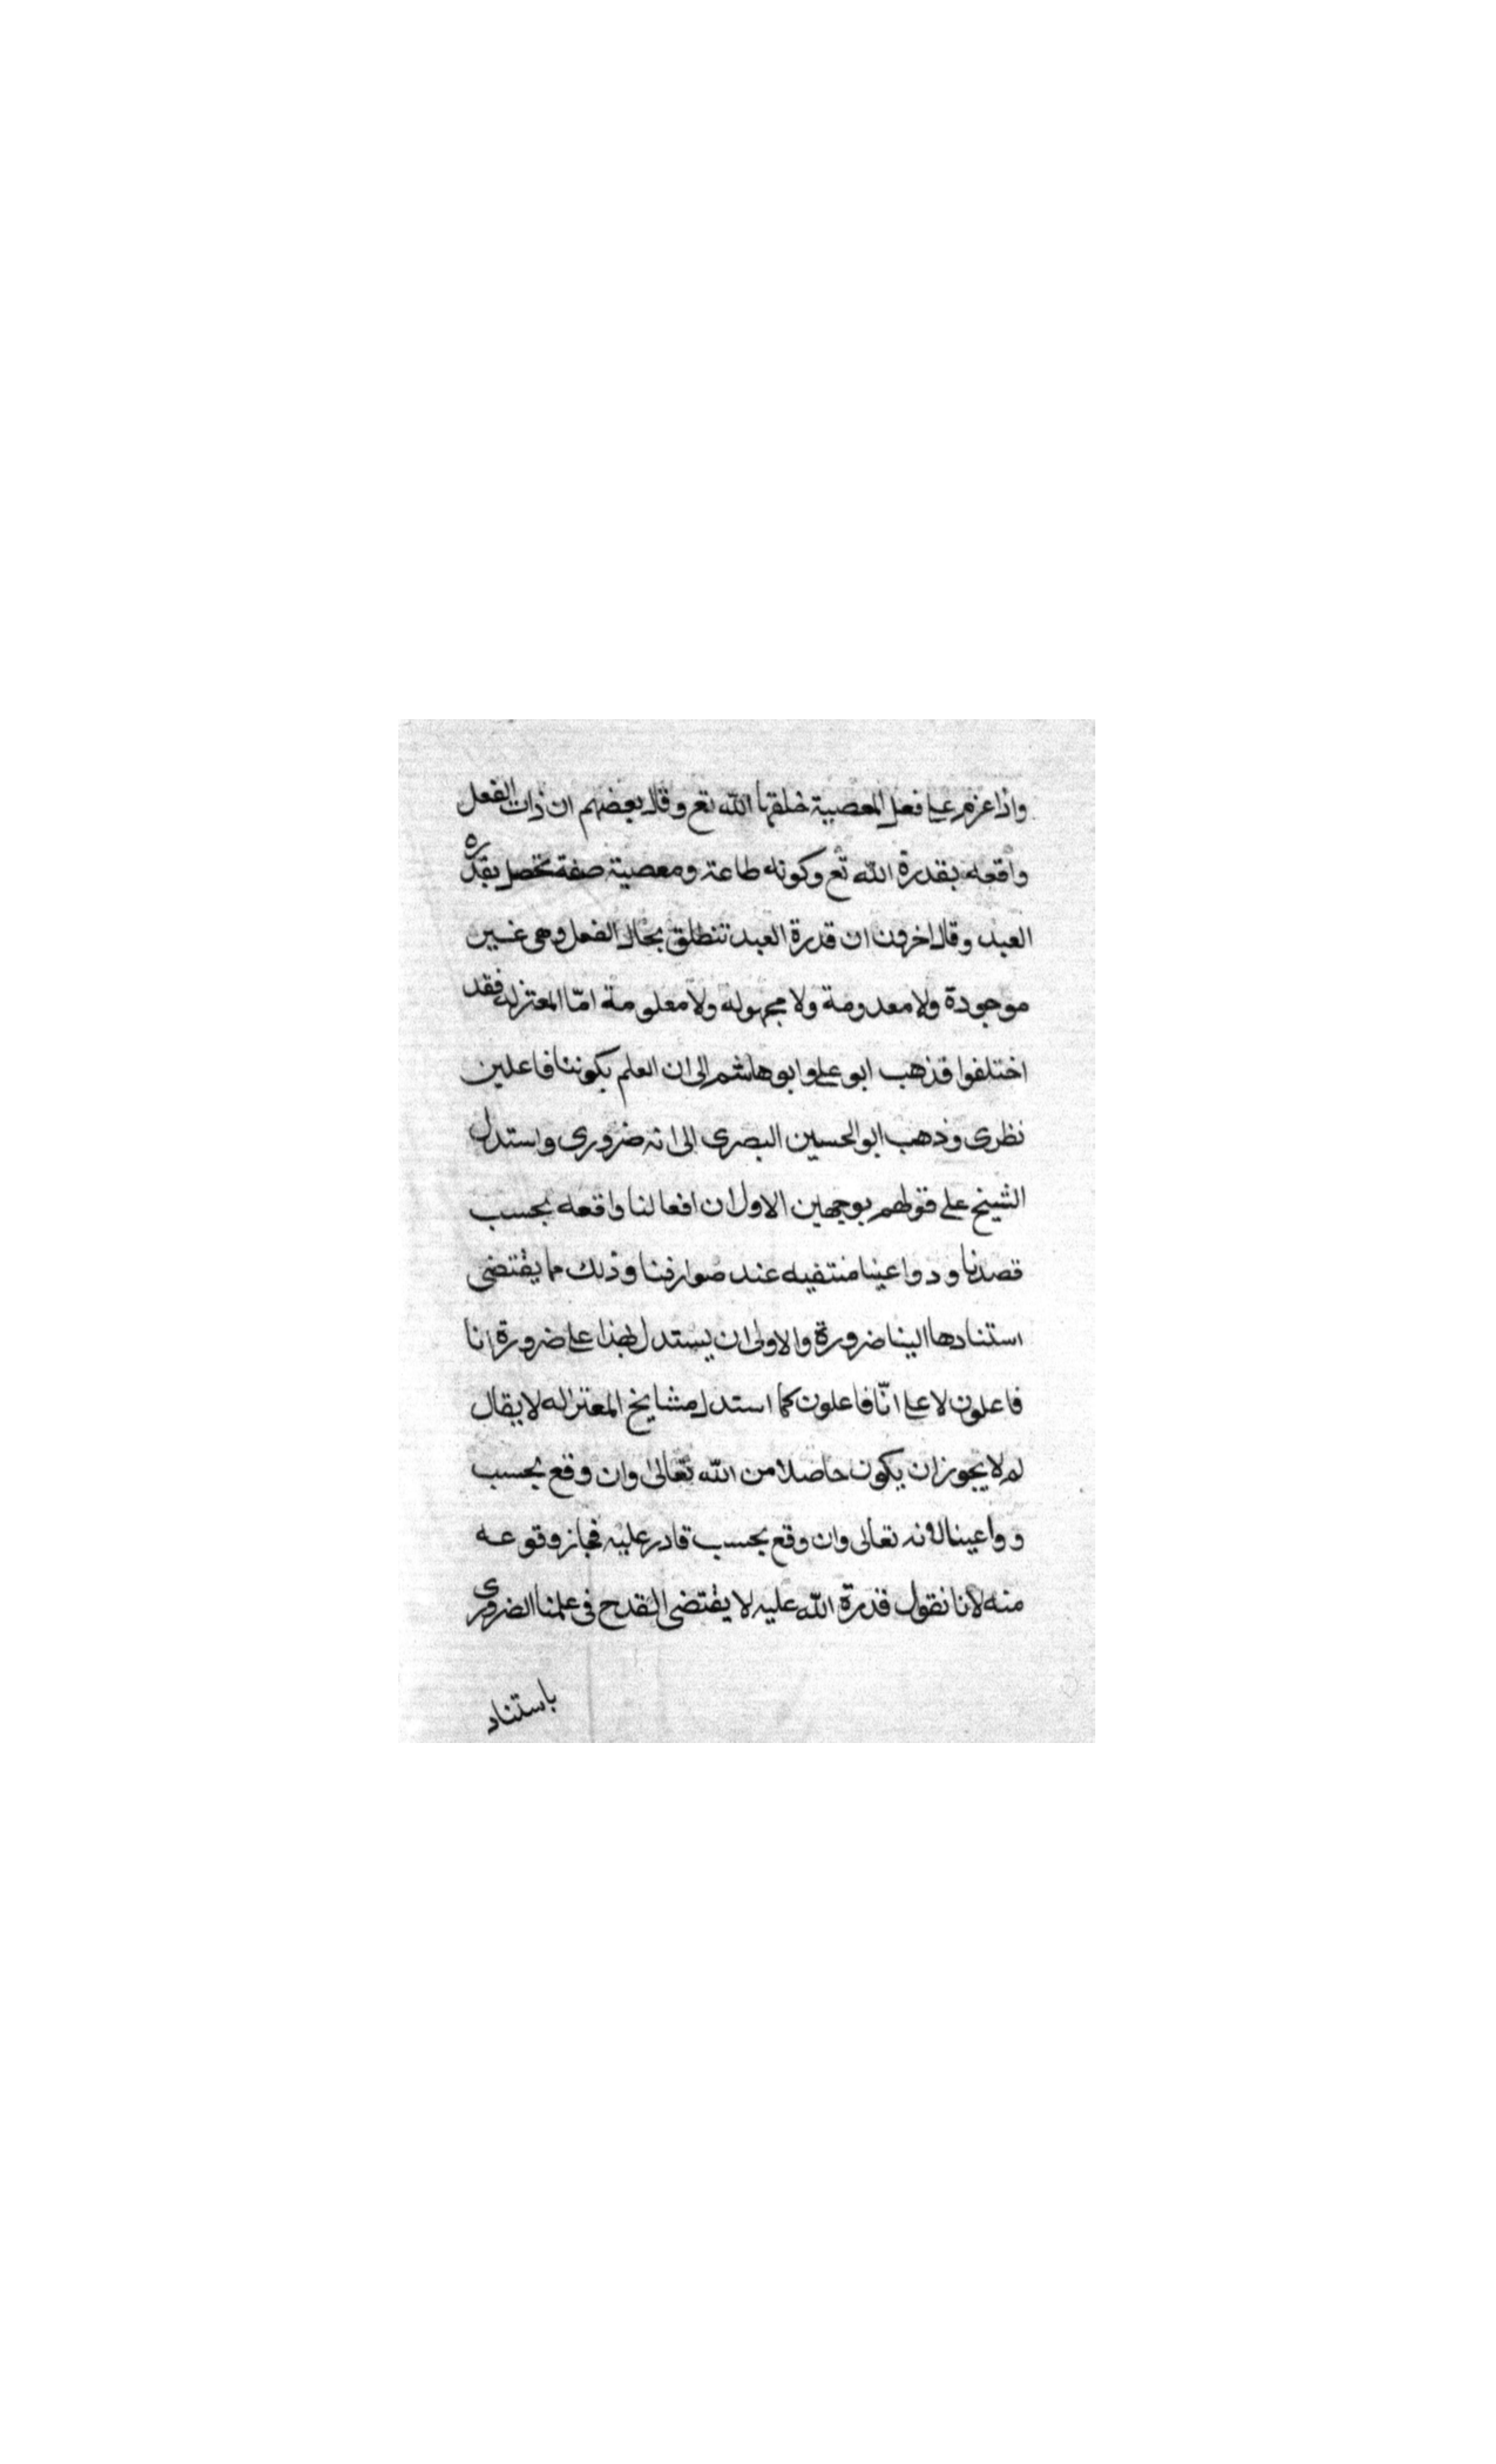 واذا عزم على فعل المعصية خلقها الله تع وقال بعضهم ان ذات الفعل
واقعه بقدرة الله تع وكونه طاعة ومعصية صفة تحصل بقدره
العبد وقال اخرون ان قدرة العبد تتطلق بحال الفعل وهي غير
موجودة ولا معدومة ولا مجهوله ولا معلومة امّا المعتزله فقد
اختلفوا فذهب ابو علي وابو هاشم الى ان العلم بكوننا فاعلين
نظرى وذهب ابو الحسين البصرى الى انه ضرورى واستدل
الشيخ على قولهم بوجهين الاول ان افعالنا واقعه بحسب
قصدنا ودواعينا منتفيه عند صوارفنا وذلك مما يقتضى
استنادها الينا ضرورة والاولى ان يستدل بهذا على ضرورة انا
فاعلون لا على انّا فاعلون كما استدل مشايخ المعتزله لا يقال
لم لا يجوز ان يكون حاصلا من الله تعالى وان وقع بحسب
وواعينا لانه تعالى وان وقع بحسب قادر عليه فجاز وقوعه
منه لانا نقول قدرة الله عليه لا يقتضى القدح فى علمنا الضرورى
باستناد